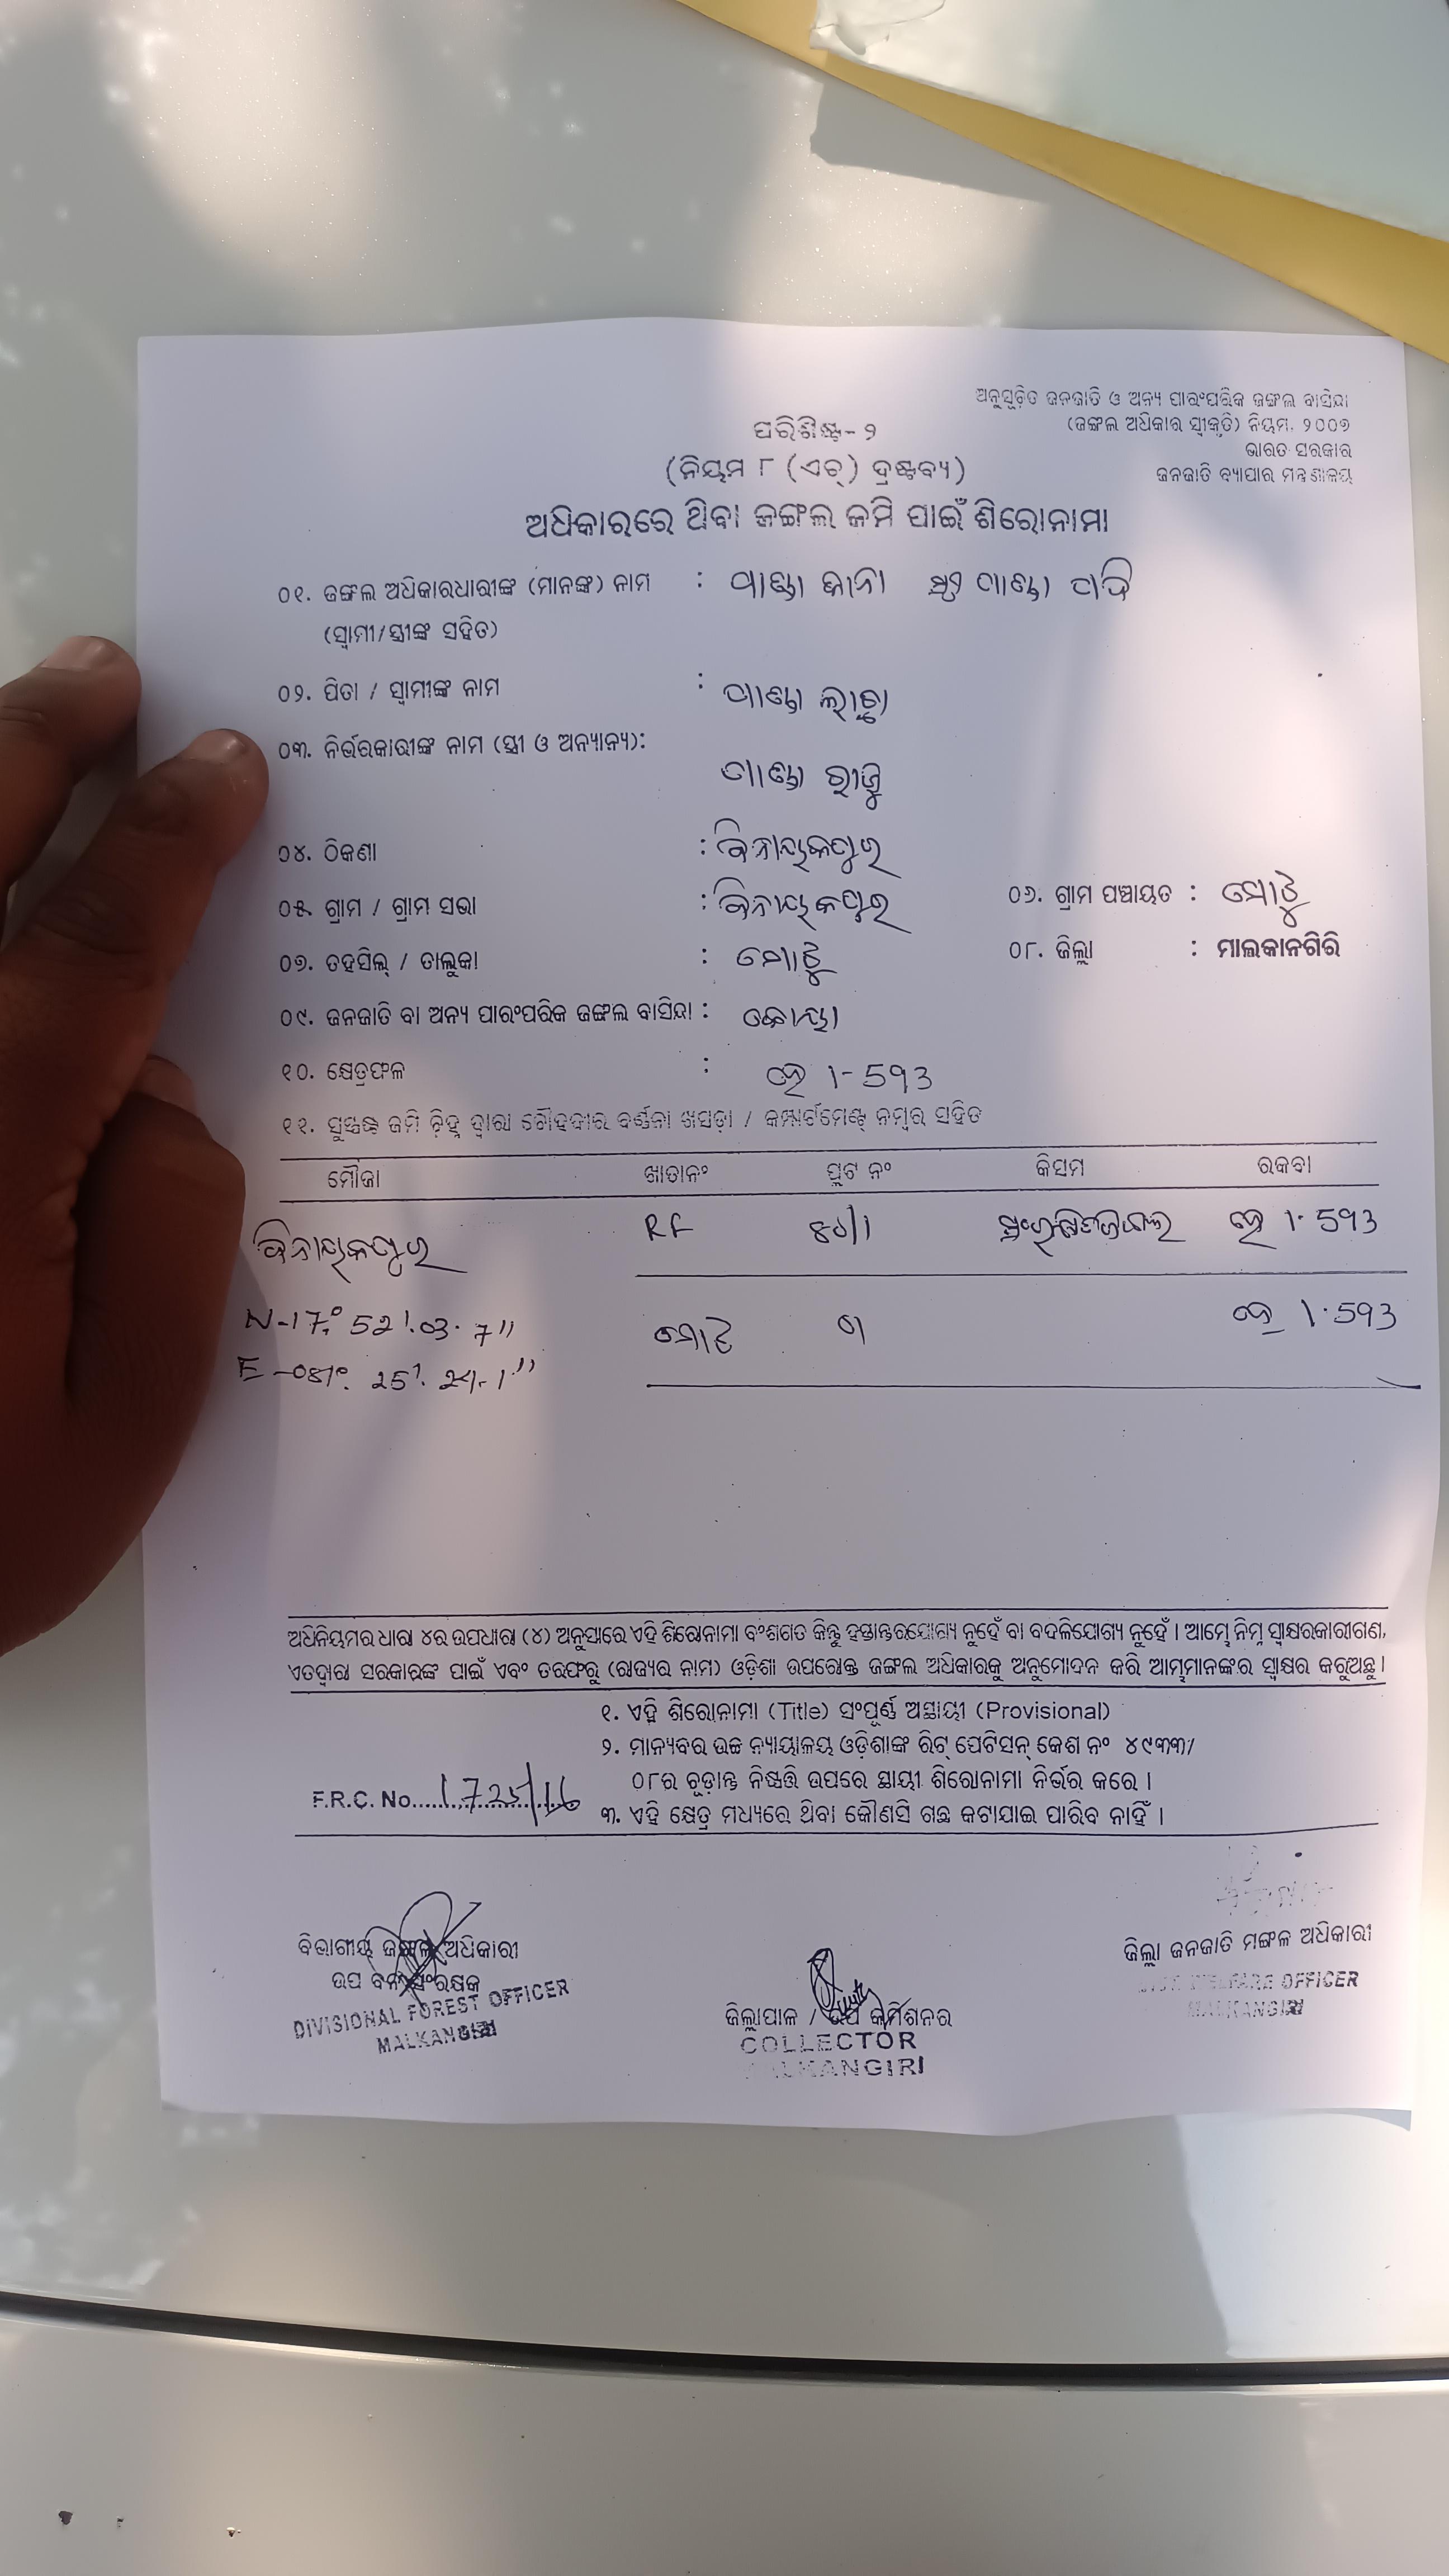 ଅନୁସୂଚିତ ଜନଜାତି ଓ ଅନ୍ୟ ପାରଂପରିକ ଜଙ୍ଗଲ ବାସିନ୍ଦା
(ଜଙ୍ଗଲ ଅଧିକାର ସ୍ୱୀକୃତି) ନିୟମ, ୨୦୦୭
ଭାରତ ସରକାର
ଜନଜାତି ବ୍ୟାପାର ମନ୍ତ୍ରଣାଳୟ
ପରିଶିଷ୍ଟ - ୨
(ନିୟମ ୮ (ଏଚ୍) ଦ୍ରଷ୍ଟବ୍ୟ)
ଅଧିକାରରେ ଥିବା ଜଙ୍ଗଲ ଜମି ପାଇଁ ଶିରୋନାମା
୦୧. ଜଙ୍ଗଲ ଅଧିକାରଧାରୀଙ୍କ (ମାନଙ୍କ) ନାମ :
(ସ୍ୱାମୀ/ସ୍ତ୍ରୀଙ୍କ ସହିତ)
୦୨. ପିତା / ସ୍ୱାମୀଙ୍କ ନାମ :
୦୩. ନିର୍ଭରକାରୀଙ୍କ ନାମ (ସ୍ତ୍ରୀ ଓ ଅନ୍ୟାନ୍ୟ):
୦୪. ଠିକଣା : ବିନାୟକପୁର
୦୫. ଗ୍ରାମ / ଗ୍ରାମ ସଭା : ବିନାୟକପୁର ୦୬. ଗ୍ରାମ ପଞ୍ଚାୟତ : ମୋଟୁ
୦୭. ତହସିଲ୍ / ତାଲୁକା : ମୋଟୁ ୦୮. ଜିଲ୍ଲା : ମାଲକାନଗିରି
୦୯. ଜନଜାତି ବା ଅନ୍ୟ ପାରଂପରିକ ଜଙ୍ଗଲ ବାସିନ୍ଦା : କୋୟା
୧୦. କ୍ଷେତ୍ରଫଳ : ହେ 1-593
୧୧. ସୁସ୍ପଷ୍ଟ ଜମି ଚିହ୍ନ ଦ୍ୱାରା ଚୌହଦୀର ବର୍ଣ୍ଣନା ଖସଡ଼ା / କମ୍ପାର୍ଟମେଣ୍ଟ୍ ନମ୍ବର ସହିତ
ମୌଜା ଖାତାନଂ ପ୍ଲଟ ନଂ କିସମ ରକବା
ବିନାୟକପୁର RF ହେ 1.593
N-17° 52'.03.7" ମୋଟ ହେ 1.593
E-081°. 25'. 24.1"
ଅଧିନିୟମର ଧାରା ୪ର ଉପଧାରା (୪) ଅନୁସାରେ ଏହି ଶିରୋନାମା ବଂଶଗତ କିନ୍ତୁ ହସ୍ତାନ୍ତରଯୋଗ୍ୟ ନୁହେଁ ବା ବଦଳିଯୋଗ୍ୟ ନୁହେଁ । ଆମ୍ଭେ ନିମ୍ନ ସ୍ୱାକ୍ଷରକାରୀଗଣ,
ଏତଦ୍ୱାରା ସରକାରଙ୍କ ପାଇଁ ଏବଂ ତରଫରୁ (ରାଜ୍ୟର ନାମ) ଓଡ଼ିଶା ଉପରୋକ୍ତ ଜଙ୍ଗଲ ଅଧିକାରକୁ ଅନୁମୋଦନ କରି ଆମ୍ଭମାନଙ୍କର ସ୍ୱାକ୍ଷର କରୁଅଛୁ ।
୧. ଏହି ଶିରୋନାମା (Title) ସଂପୂର୍ଣ୍ଣ ଅସ୍ଥାୟୀ (Provisional)
୨. ମାନ୍ୟବର ଉଚ୍ଚ ନ୍ୟାୟାଳୟ ଓଡ଼ିଶାଙ୍କ ରିଟ୍ ପେଟିସନ୍ କେଶ ନଂ ୪୯୩୩/
୦୮ର ଚୂଡ଼ାନ୍ତ ନିଷ୍ପତ୍ତି ଉପରେ ସ୍ଥାୟୀ ଶିରୋନାମା ନିର୍ଭର କରେ ।
F.R.C. No. 1725/16
୩. ଏହି କ୍ଷେତ୍ର ମଧ୍ୟରେ ଥିବା କୌଣସି ଗଛ କଟାଯାଇ ପାରିବ ନାହିଁ ।
ବିଭାଗୀୟ ଜଙ୍ଗଲ ଅଧିକାରୀ
ଉପ ବନ ସଂରକ୍ଷକ
DIVISIONAL FOREST OFFICER
MALKANGIRI
ଜିଲ୍ଲାପାଳ / ଉପ କମିଶନର
COLLECTOR
MALKANGIRI
ଜିଲ୍ଲା ଜନଜାତି ମଙ୍ଗଳ ଅଧିକାରୀ
WELFARE OFFICER
MALKANGIRI